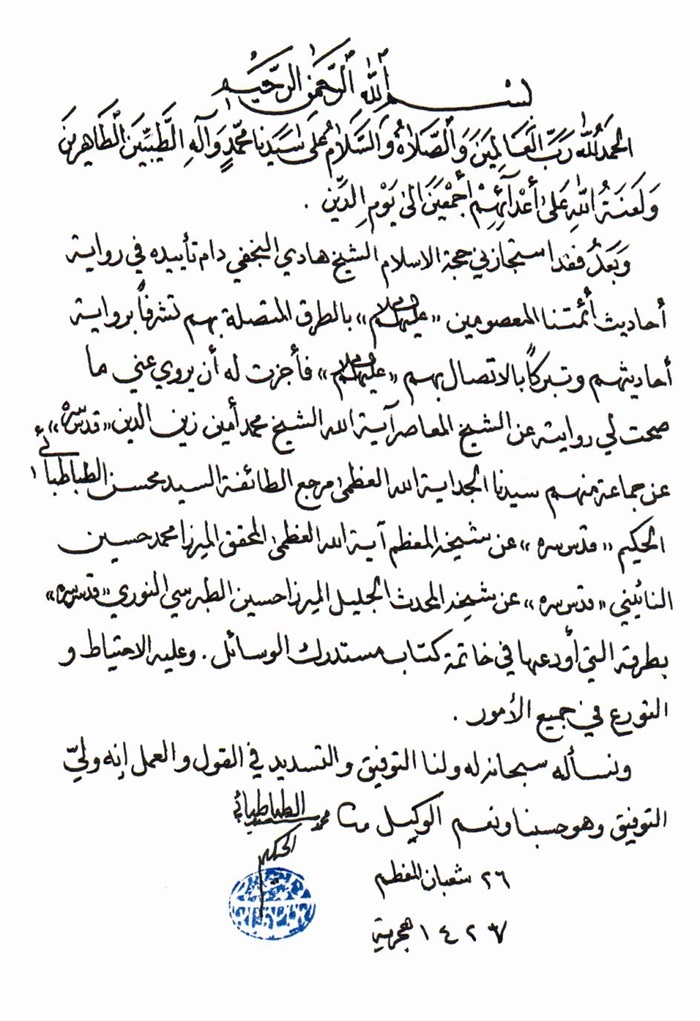 بسم الله الرحمن الرحيم
الحمد لله رَبِّ العَالَمِينَ وَالصَّلاةُ وَالسَّلامُ عَلى سَيِّدنا محمّدٍ وَآلهِ الطَّيِّبِينَ الطَّاهِرِينَ
وَلَعْنَةُ اللهِ عَلى أعْدَآئِهِمْ أجْمَعِينَ إلى يَوْمِ الدِّين .
وَبَعدُ فقد استجازني حجة الاسلام الشيخ هادي النجفي دام تأييده في رواية
أحاديث أئمتنا المعصومين «عليهم السلام» بالطرق المتصلة بهم تشرفاً برواية
أحاديثهم وتبركاً بالاتصال بهم «عليهم السلام» فأجزت له أن يروي عني ما
صحت لي روايته عن الشيخ المعاصر آية الله الشيخ محمد أمين زين الدين «قدس سره»
عن جماعة منهم سيدنا الجد آية الله العظمى مرجع الطائفة السيد محسن الطباطبائي
الحكيم «قدس سره» عن شيخه المعظم آية الله العظمى المحقق الميرزا محمد حسين
النائيني «قدس سره» عن شيخه المحدث الجليل الميرزا حسين الطبرسي النوري «قدس سره»
بطرقه التي أودعها في خاتمة كتاب مستدرك الوسائل . وعليه الاحتياط و
التورع في جميع الأمور .
ونسأله سبحانه له ولنا التوفيق والتسديد في القول والعمل إنه وليّ
التوفيق وهو حسبنا ونعم الوكيل
الطباطبائي
الحكيم
٢٦ شعبان المعظم
١٤٢٧ هجرية